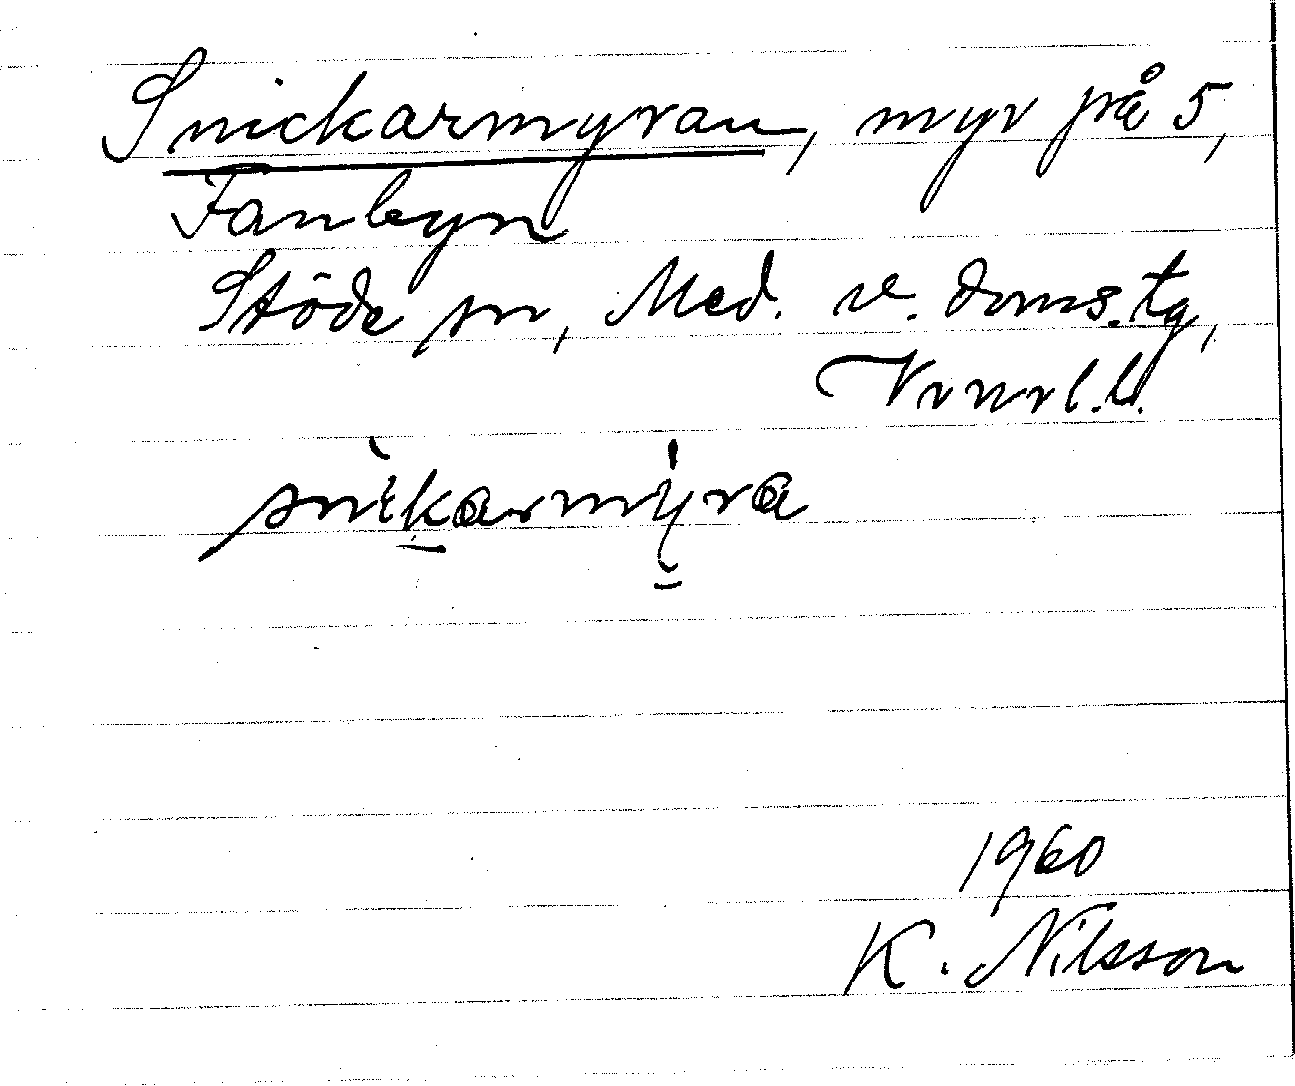 Snickarmyran, myr på 5,
Fanbyn
Stöde sn, Med. v. doms.tg,
Vrnrl.l.
snikarmyra
1960
K. Nilsson